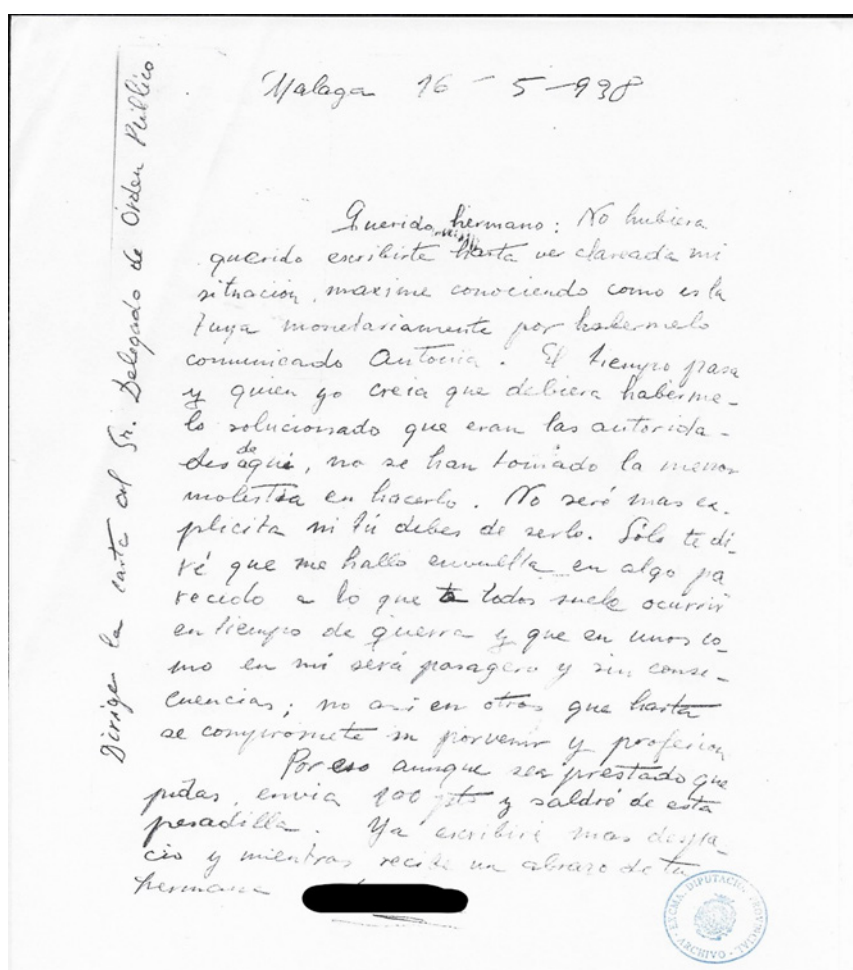 Malaga 16 - 5 - 938
Querido hermano: No hubiera
querido escribirte hasta ver clareada mi
situación, maxime conociendo como es la
tuya monetariamente por habermelo
comunicado Antonia. El tiempo pasa
y quien yo creia que debiera haberme-
lo solucionado que eran las autorida-
des de aqui, no se han tomado la menor
molestia en hacerlo. No seré mas ex-
plicita ni tú debes de serlo. Sólo te di-
ré que me hallo envuelta en algo pa
recido a lo que a todos suele ocurrir
en tiempo de guerra y que en unos co-
mo en mi será pasagero y sin conse-
cuencias; no asi en otros que hasta
se compromete su porvenir y profesion
Por eso aunque sea prestado que
pidas, envia 100 pts y saldré de esta
pesadilla. Ya escribiré mas despa-
cio y mientras recibe un abrazo de tu
hermana
Dirige la carta al Sr. Delegado de Orden Público
EXCMA. DIPUTACIÓN PROVINCIAL
ARCHIVO